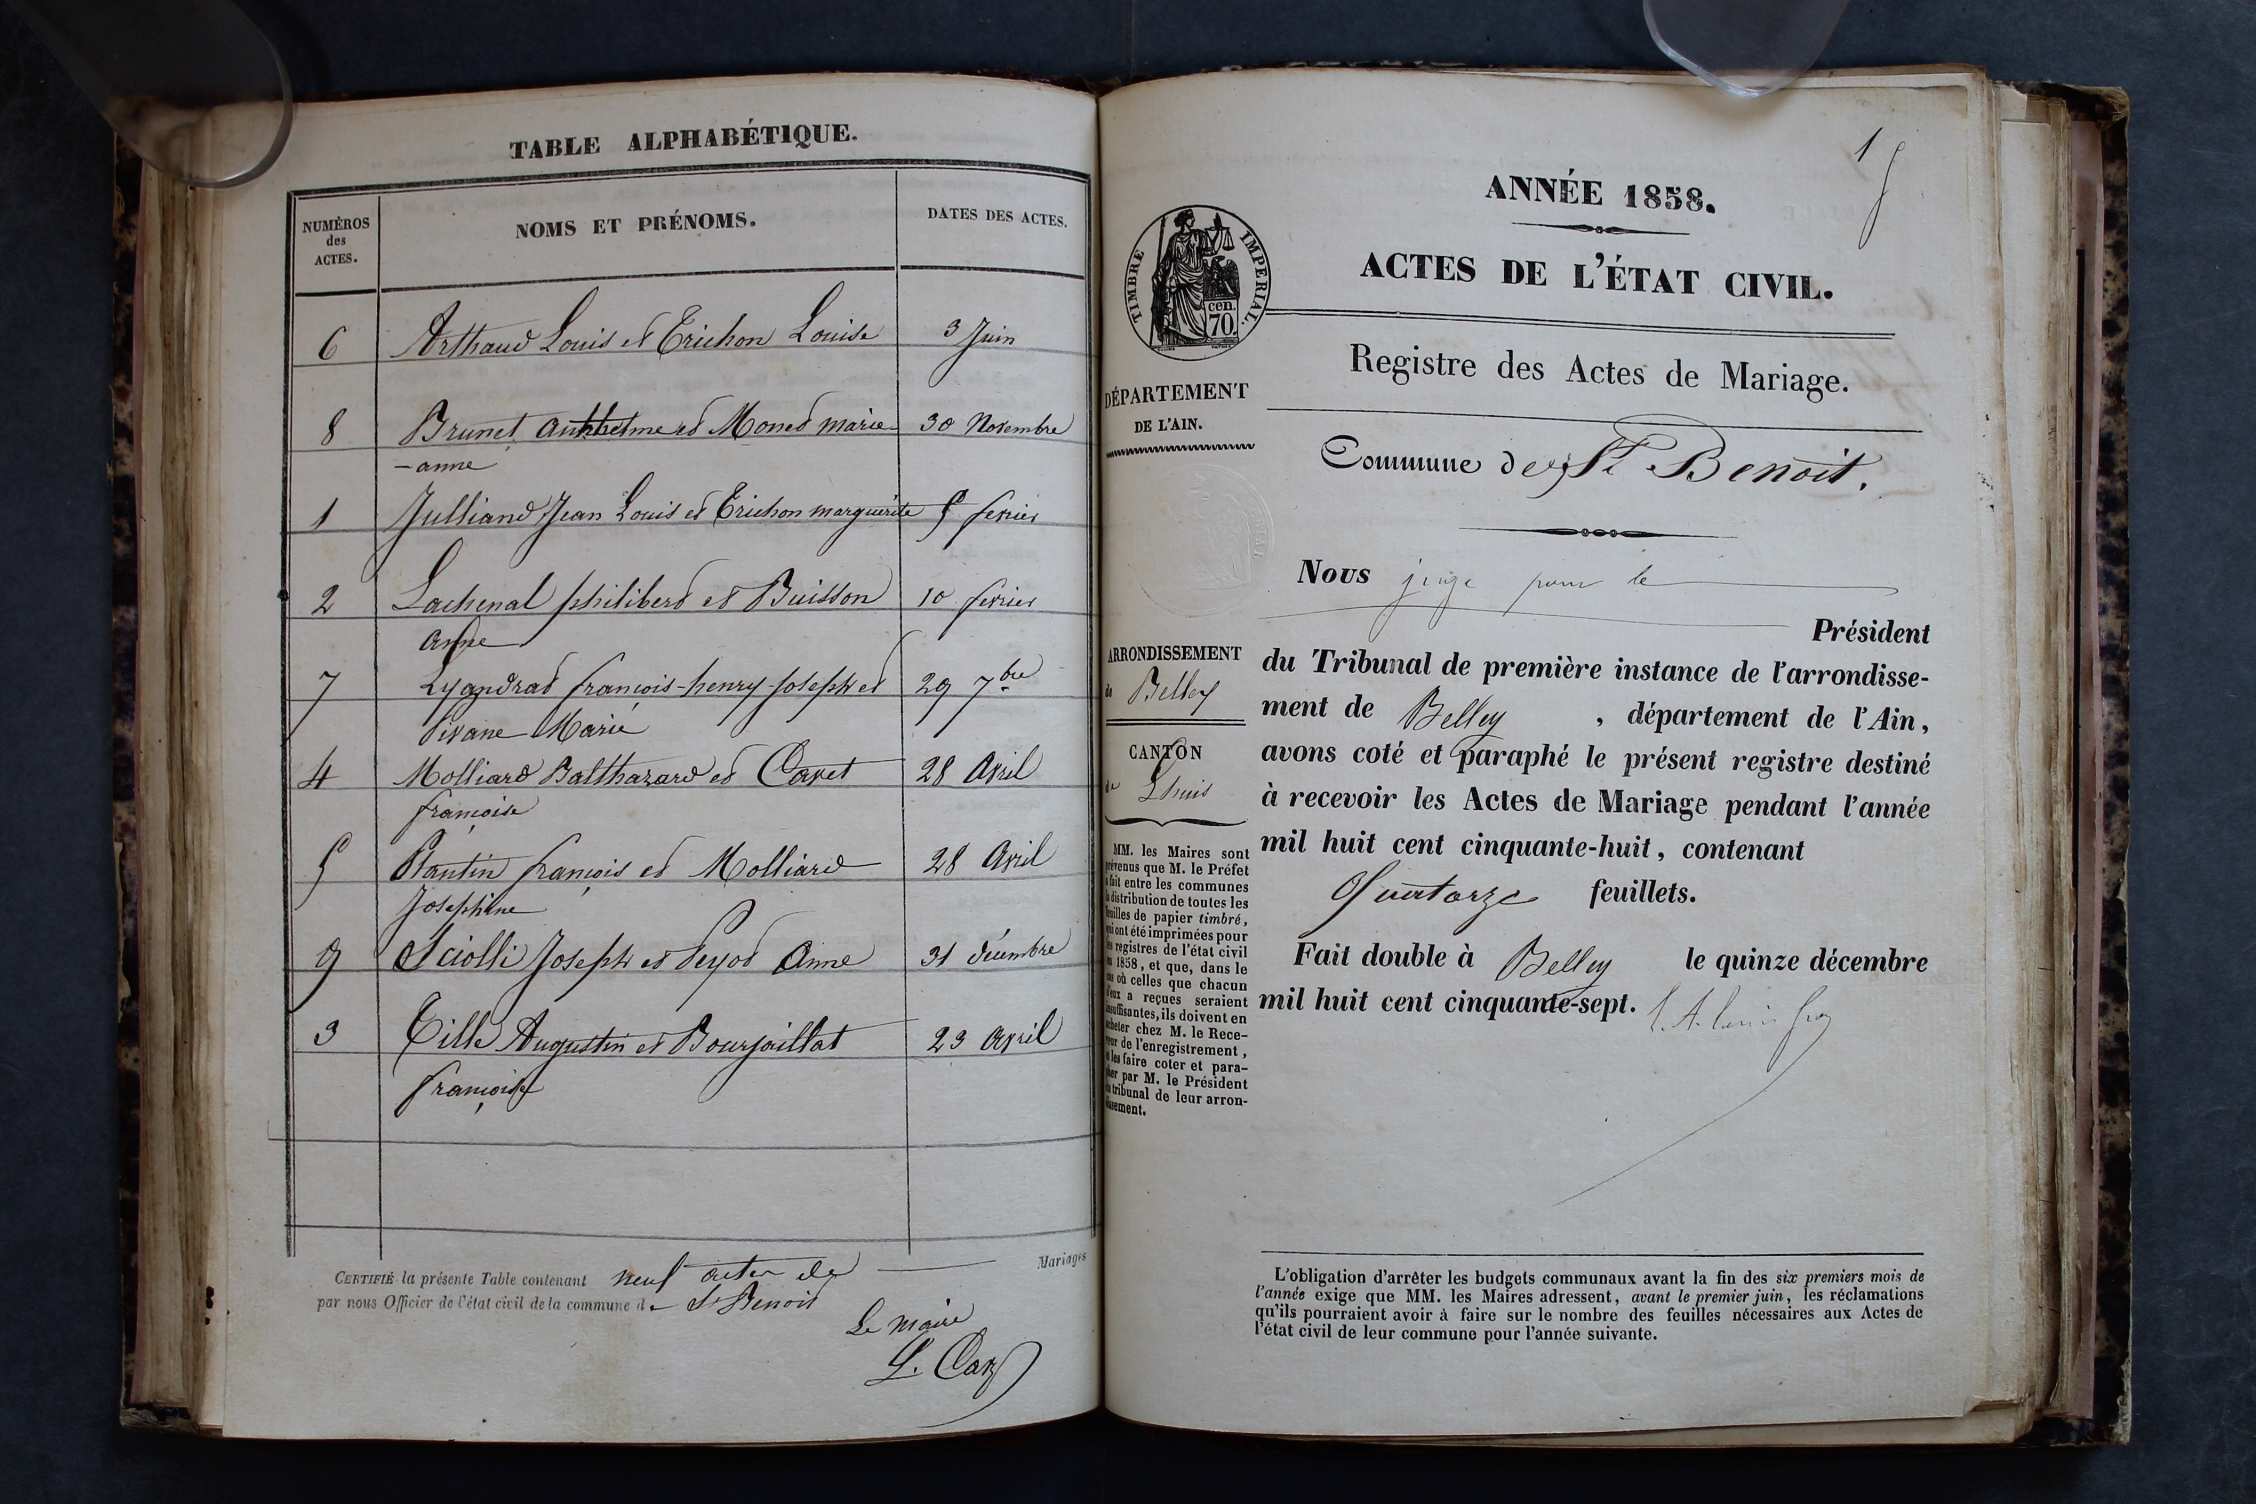 TABLE ALPHABÉTIQUE.
NUMÉROS
des
ACTES.
NOMS ET PRÉNOMS.
DATES DES ACTES.
6 Arthaud Louis et Trichon Louise 3 Juin
8 Brunet anthelme et Monet marie 30 Novembre
-anne
1 Julliand Jean Louis et Trichon marguerite 5 fevrier
2 Lachenal philibert et Buisson 10 fevrier
anne
7 Lyandrat françois-henry-Joseph et 29 7bre
Pivane Marie
4 Molliard Balthazard et Cavet 28 Avril
françoise
5 Plantin françois et Molliard 28 Avril
Josephine
9 Sciolli Joseph et Peyot Anne 31 décembre
3 Tille Augustin et Bourjaillat 23 avril
françoise
CERTIFIÉ la présente Table contenant neuf actes de Mariages
par nous Officier de l'état civil de la commune de St Benoit
Le maire
1
ANNÉE 1858.
ACTES DE L'ÉTAT CIVIL.
TIMBRE IMPERIAL.
cen.
70.
Registre des Actes de Mariage.
DÉPARTEMENT
DE L'AIN.
Commune de St Benoit.
Nous juge pour le
Président
du Tribunal de première instance de l'arrondisse-
ment de Belley, département de l'Ain,
avons coté et paraphé le présent registre destiné
à recevoir les Actes de Mariage pendant l'année
mil huit cent cinquante-huit, contenant
Quatorze feuillets.
Fait double à Belley le quinze décembre
mil huit cent cinquante-sept.
ARRONDISSEMENT
de Belley
CANTON
de Lhuis
MM. les Maires sont
prévenus que M. le Préfet
a fait entre les communes
la distribution de toutes les
feuilles de papier timbré,
qui ont été imprimées pour
les registres de l'état civil
en 1858, et que, dans le
cas où celles que chacun
d'eux a reçues seraient
insuffisantes, ils doivent en
acheter chez M. le Rece-
veur de l'enregistrement,
et les faire coter et para-
pher par M. le Président
du tribunal de leur arron-
dissement.
L'obligation d'arrêter les budgets communaux avant la fin des six premiers mois de
l'année exige que MM. les Maires adressent, avant le premier juin, les réclamations
qu'ils pourraient avoir à faire sur le nombre des feuilles nécessaires aux Actes de
l'état civil de leur commune pour l'année suivante.